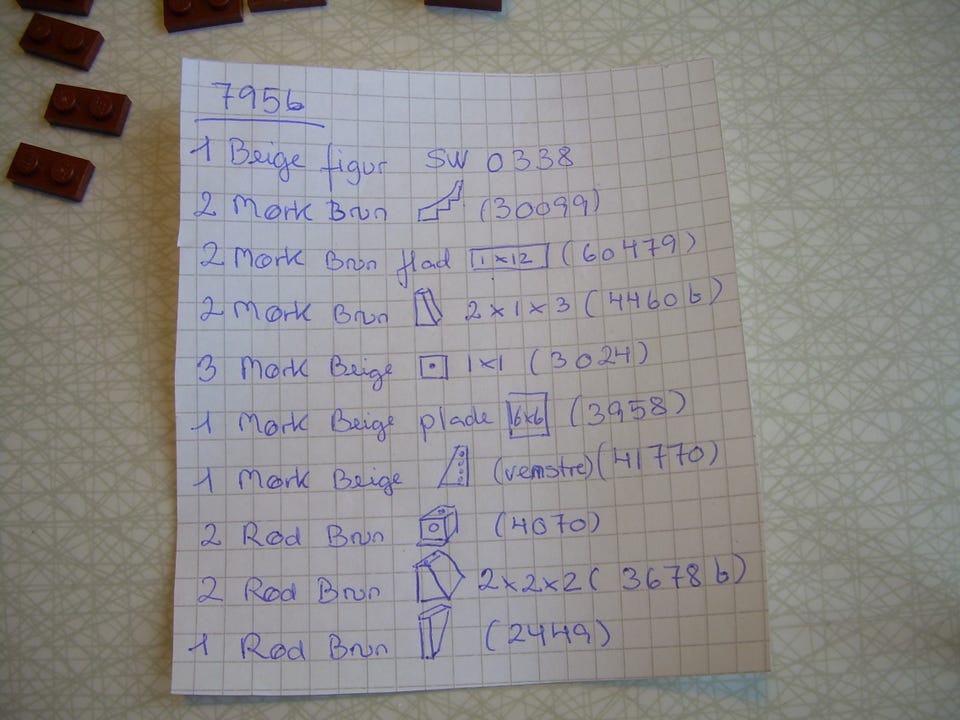 7956
1 Beige figur SW 0338
2 Mork Brun (30099)
2 Mork Brun flad 1x12 (60479)
2 Mork Brun 2x1x3 (4460b)
3 Mork Beige 1x1 (3024)
1 Mork Beige plade 6x6 (3958)
1 Mork Beige (vemstre) (41770)
2 Rod Brun (4070)
2 Rod Brun 2x2x2 (3678b)
1 Rod Brun (2449)